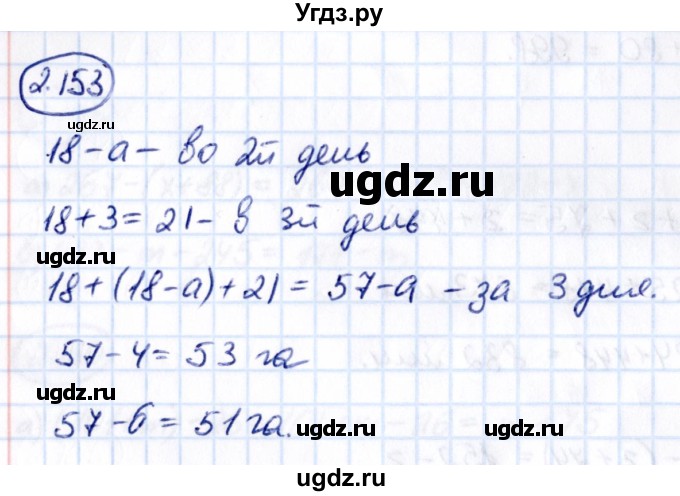 Угдз.ру
2.153
ugdz.ru
18 - а - во 2й день
ugdz.ru
ugdz.ru
18 + 3 = 21 - в 3й день
ugdz.ru
18 + (18 - а) + 21 = 57 - а - за 3 дня.
ugdz.ru
57 - 4 = 53 га
57 - 6 = 51 га.
ugdz.ru
ugdz.ru
ugdz.ru